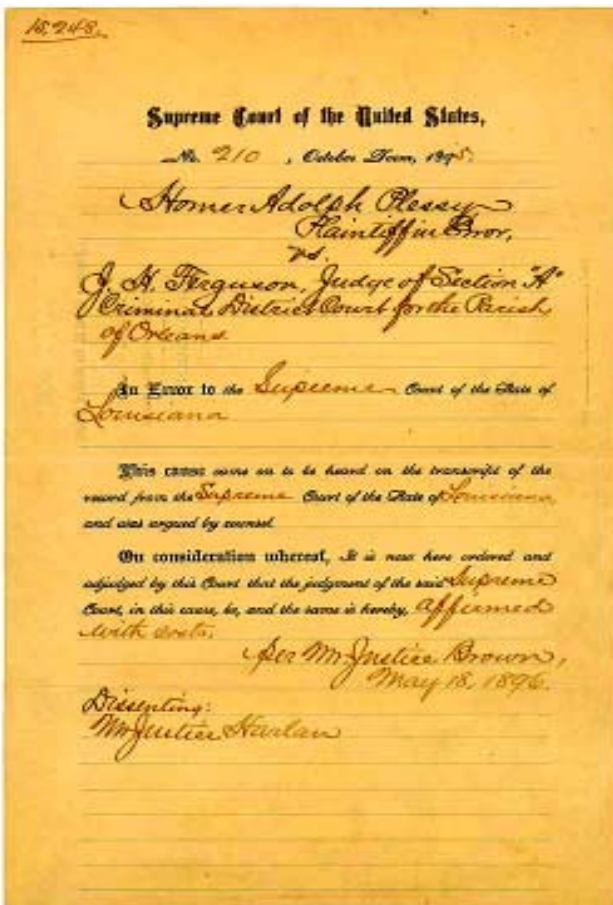 15,248.
Supreme Court of the United States,
No. 210 , October Term, 1895.
Homer Adolph Plessy
Plaintiff in Error,
vs.
J. H. Ferguson, Judge of Section "A"
Criminal District Court for the Parish
of Orleans
In Error to the Supreme Court of the State of
Louisiana
This cause came on to be heard on the transcript of the
record from the Supreme Court of the State of Louisiana,
and was argued by counsel.
On consideration whereof, It is now here ordered and
adjudged by this Court that the judgment of the said Supreme
Court, in this cause, be, and the same is hereby, affirmed
with costs.
per Mr. Justice Brown,
May 18, 1896.
Dissenting:
Mr. Justice Harlan